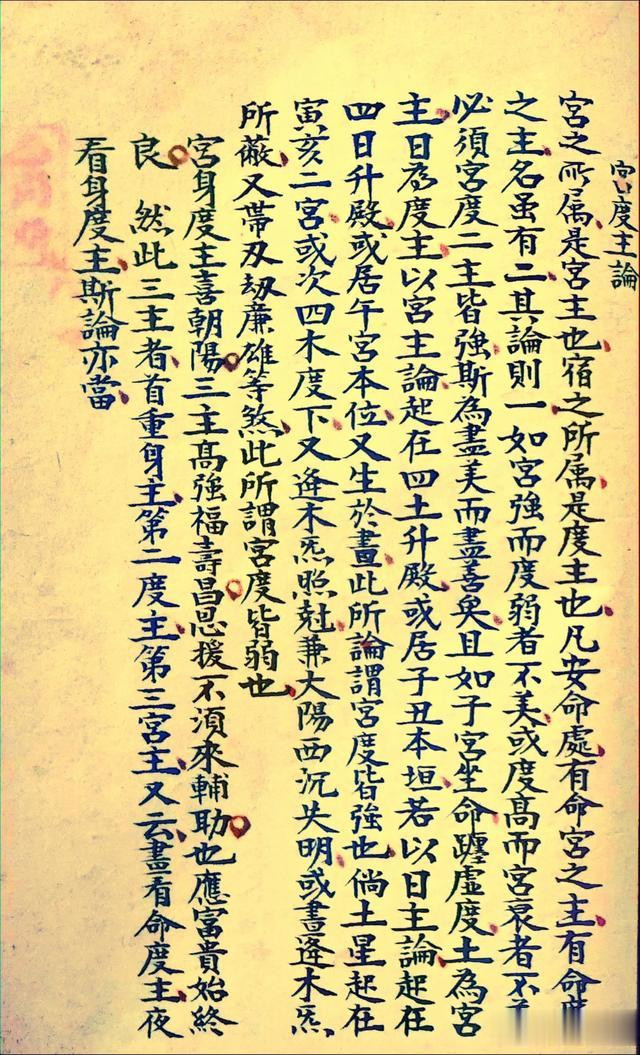 宫度主論
宮之所属是宮主也宿之所属是度主也凡安命處有命宮之主有命度
之主名虽有二其論則一如宮強而度弱者不美或度高而宮衰者不
必須宮度二主皆強斯為盡美而盡善矣且如子宮坐命躔虚度土為宮
主日為度主以宮主論起在四土升殿或居子丑本垣若以日主論起在
四日升殿或居午宮本位又生於晝此所論謂宮度皆強也倘土星起在
寅亥二宮或次四木度下又逢木炁照尅兼大陽西沉失明或晝逢木炁
所蔽又帶刃刼廉雄等煞此所謂宮度皆弱也
宮身度主喜朝陽三主高強福壽昌恩援不須來輔助也應富貴始終
良 然此三主者首重身主第二度主第三宮主又云晝看命度主夜
看身度主斯論亦當